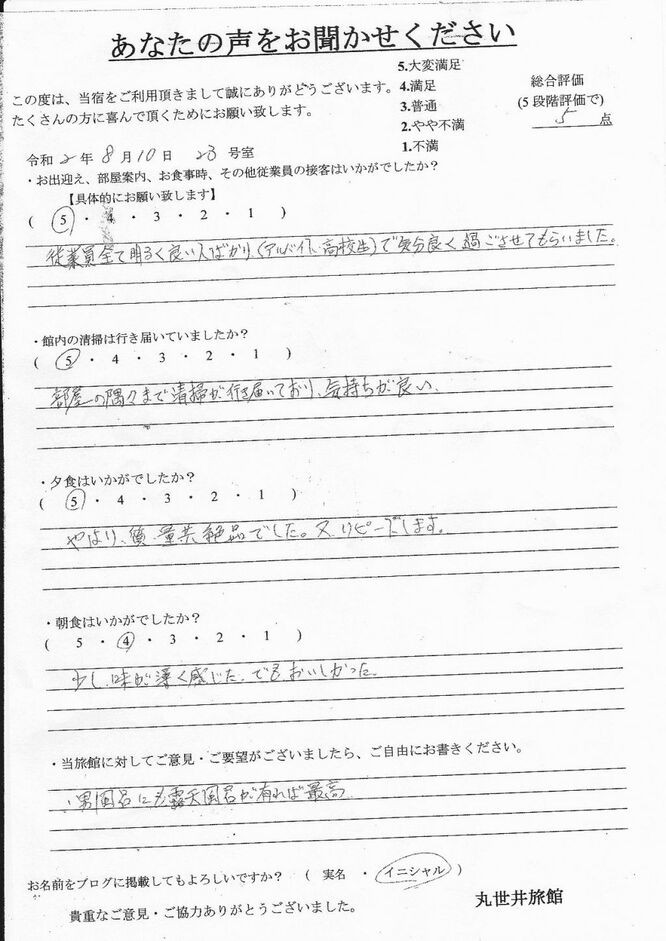 あなたの声をお聞かせください
この度は、当宿をご利用頂きまして誠にありがとうございます。
たくさんの方に喜んで頂くためにお願い致します。
5.大変満足
4.満足
3.普通
2.やや不満
1.不満
総合評価
(5段階評価で)
5 点
令和2年8月10日 23号室
・お出迎え、部屋案内、お食事時、その他従業員の接客はいかがでしたか?
【具体的にお願い致します】
( 5 ・ 4 ・ 3 ・ 2 ・ 1 )
従業員全て明るく良い人ばかり(アルバイト、高校生)で気分良く過ごさせてもらいました。
・館内の清掃は行き届いていましたか?
( 5 ・ 4 ・ 3 ・ 2 ・ 1 )
部屋の隅々まで清掃が行き届いており、気持ちが良い、
・夕食はいかがでしたか?
( 5 ・ 4 ・ 3 ・ 2 ・ 1 )
やはり、質、量共絶品でした。又、リピートします。
・朝食はいかがでしたか?
( 5 ・ 4 ・ 3 ・ 2 ・ 1 )
少し、味が薄く感じた、でもおいしかった。
・当旅館に対してご意見・ご要望がございましたら、ご自由にお書きください。
・男風呂にも露天風呂が有れば最高
お名前をブログに掲載してもよろしいですか? ( 実名 ・ イニシャル )
貴重なご意見・ご協力ありがとうございました。
丸世井旅館